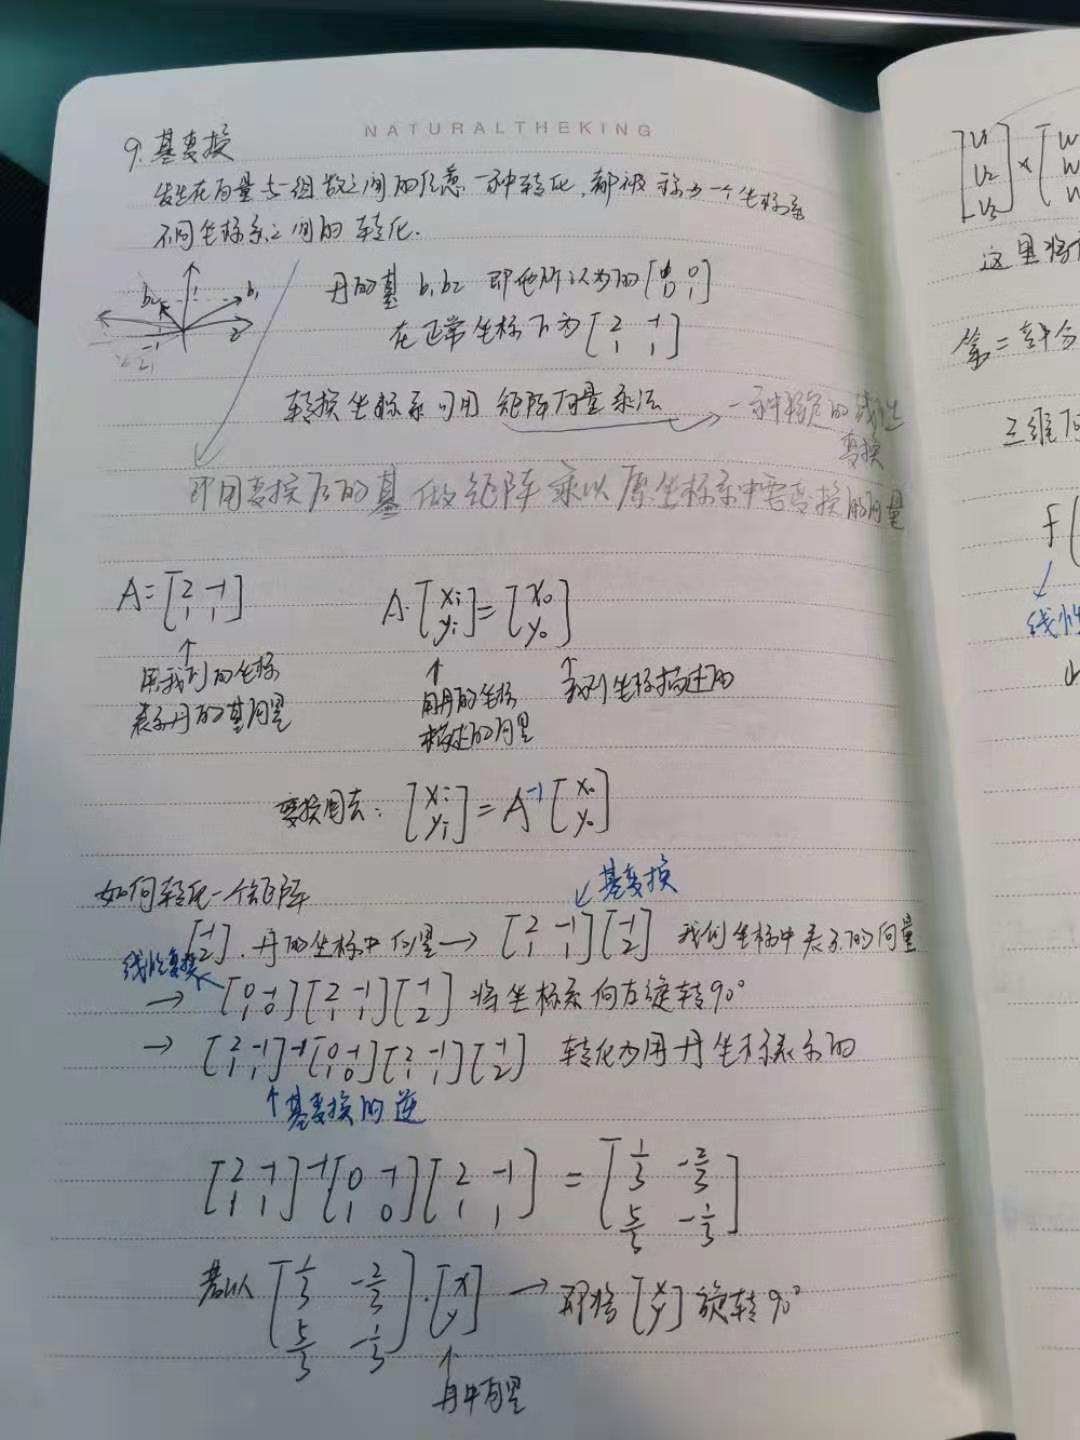 NATURALTHEKING
9. 基变换
发生在向量与一组数之间的任意一种转化,都被称为一个坐标系
不同坐标系之间的转化.
b2 b1
丹的基 b1 b2 即他所认为的[1 0; 0 1]
在正常坐标下为[2 -1; 1 1]
转换坐标系可用 矩阵向量乘法 → 一种特定的线性
变换
即用变换后的基做矩阵乘以原坐标系中需变换的向量
A=[2 -1; 1 1] A·[xi; yi]=[x0; y0]
↑ 用我们的坐标
表示丹的基向量
↑ 用丹的坐标
描述的向量
↑ 我们坐标描述的
变换回去: [xi; yi]=A⁻¹[x0; y0]
如何转化一个矩阵
↙基变换
[-1; 2]. 丹的坐标中向量→ [2 -1; 1 1][-1; 2] 我们坐标中表示的向量
线性变换
→ [0 -1; 1 0][2 -1; 1 1][-1; 2] 将坐标系向左旋转90°
→ [2 -1; 1 1]⁻¹[0 -1; 1 0][2 -1; 1 1][-1; 2] 转化为用丹坐标表示的
↑基变换的逆
[2 -1; 1 1]⁻¹[0 -1; 1 0][2 -1; 1 1] = [1/3 -2/3; 5/3 -1/3]
[1/3 -2/3; 5/3 -1/3]·[x; y] → 即将[x; y]旋转90°
↑
丹中向量
这里将
第二部分
三维
f(
线性